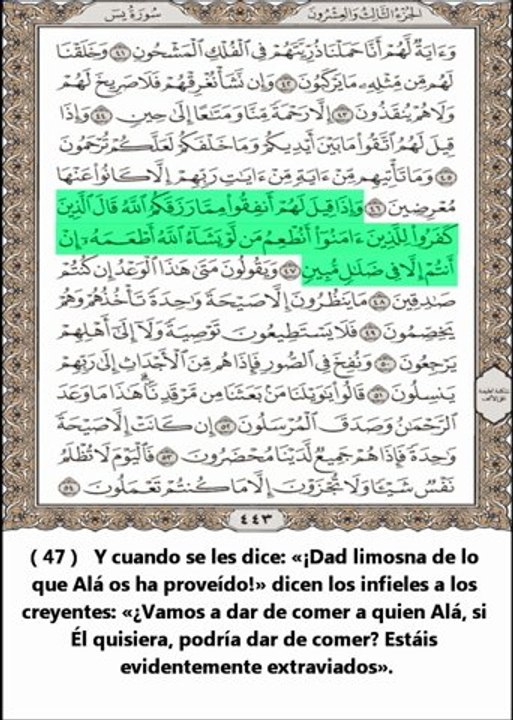 الجزء الثالث والعشرون
سورة يس
وَءَايَةٌ لَّهُمْ أَنَّا حَمَلْنَا ذُرِّيَّتَهُمْ فِي الْفُلْكِ الْمَشْحُونِ ٤١ وَخَلَقْنَا
لَهُم مِّن مِّثْلِهِ مَا يَرْكَبُونَ ٤٢ وَإِن نَّشَأْ نُغْرِقْهُمْ فَلَا صَرِيخَ لَهُمْ
وَلَا هُمْ يُنقَذُونَ ٤٣ إِلَّا رَحْمَةً مِّنَّا وَمَتَاعًا إِلَىٰ حِينٍ ٤٤ وَإِذَا
قِيلَ لَهُمُ اتَّقُوا مَا بَيْنَ أَيْدِيكُمْ وَمَا خَلْفَكُمْ لَعَلَّكُمْ تُرْحَمُونَ
٤٥ وَمَا تَأْتِيهِم مِّنْ ءَايَةٍ مِّنْ ءَايَاتِ رَبِّهِمْ إِلَّا كَانُوا عَنْهَا
مُعْرِضِينَ ٤٦ وَإِذَا قِيلَ لَهُمْ أَنفِقُوا مِمَّا رَزَقَكُمُ اللَّهُ قَالَ الَّذِينَ
كَفَرُوا لِلَّذِينَ ءَامَنُوا أَنُطْعِمُ مَن لَّوْ يَشَاءُ اللَّهُ أَطْعَمَهُ إِنْ
أَنتُمْ إِلَّا فِي ضَلَالٍ مُّبِينٍ ٤٧ وَيَقُولُونَ مَتَىٰ هَٰذَا الْوَعْدُ إِن كُنتُمْ
صَادِقِينَ ٤٨ مَا يَنظُرُونَ إِلَّا صَيْحَةً وَاحِدَةً تَأْخُذُهُمْ وَهُمْ
يَخِصِّمُونَ ٤٩ فَلَا يَسْتَطِيعُونَ تَوْصِيَةً وَلَا إِلَىٰ أَهْلِهِمْ
يَرْجِعُونَ ٥٠ وَنُفِخَ فِي الصُّورِ فَإِذَا هُم مِّنَ الْأَجْدَاثِ إِلَىٰ رَبِّهِمْ
يَنسِلُونَ ٥١ قَالُوا يَا وَيْلَنَا مَن بَعَثَنَا مِن مَّرْقَدِنَا هَٰذَا مَا وَعَدَ
الرَّحْمَٰنُ وَصَدَقَ الْمُرْسَلُونَ ٥٢ إِن كَانَتْ إِلَّا صَيْحَةً
وَاحِدَةً فَإِذَا هُمْ جَمِيعٌ لَّدَيْنَا مُحْضَرُونَ ٥٣ فَالْيَوْمَ لَا تُظْلَمُ
نَفْسٌ شَيْئًا وَلَا تُجْزَوْنَ إِلَّا مَا كُنتُمْ تَعْمَلُونَ ٥٤
٤٤٣
( 47 ) Y cuando se les dice: «¡Dad limosna de lo
que Alá os ha proveído!» dicen los infieles a los
creyentes: «¿Vamos a dar de comer a quien Alá, si
Él quisiera, podría dar de comer? Estáis
evidentemente extraviados».